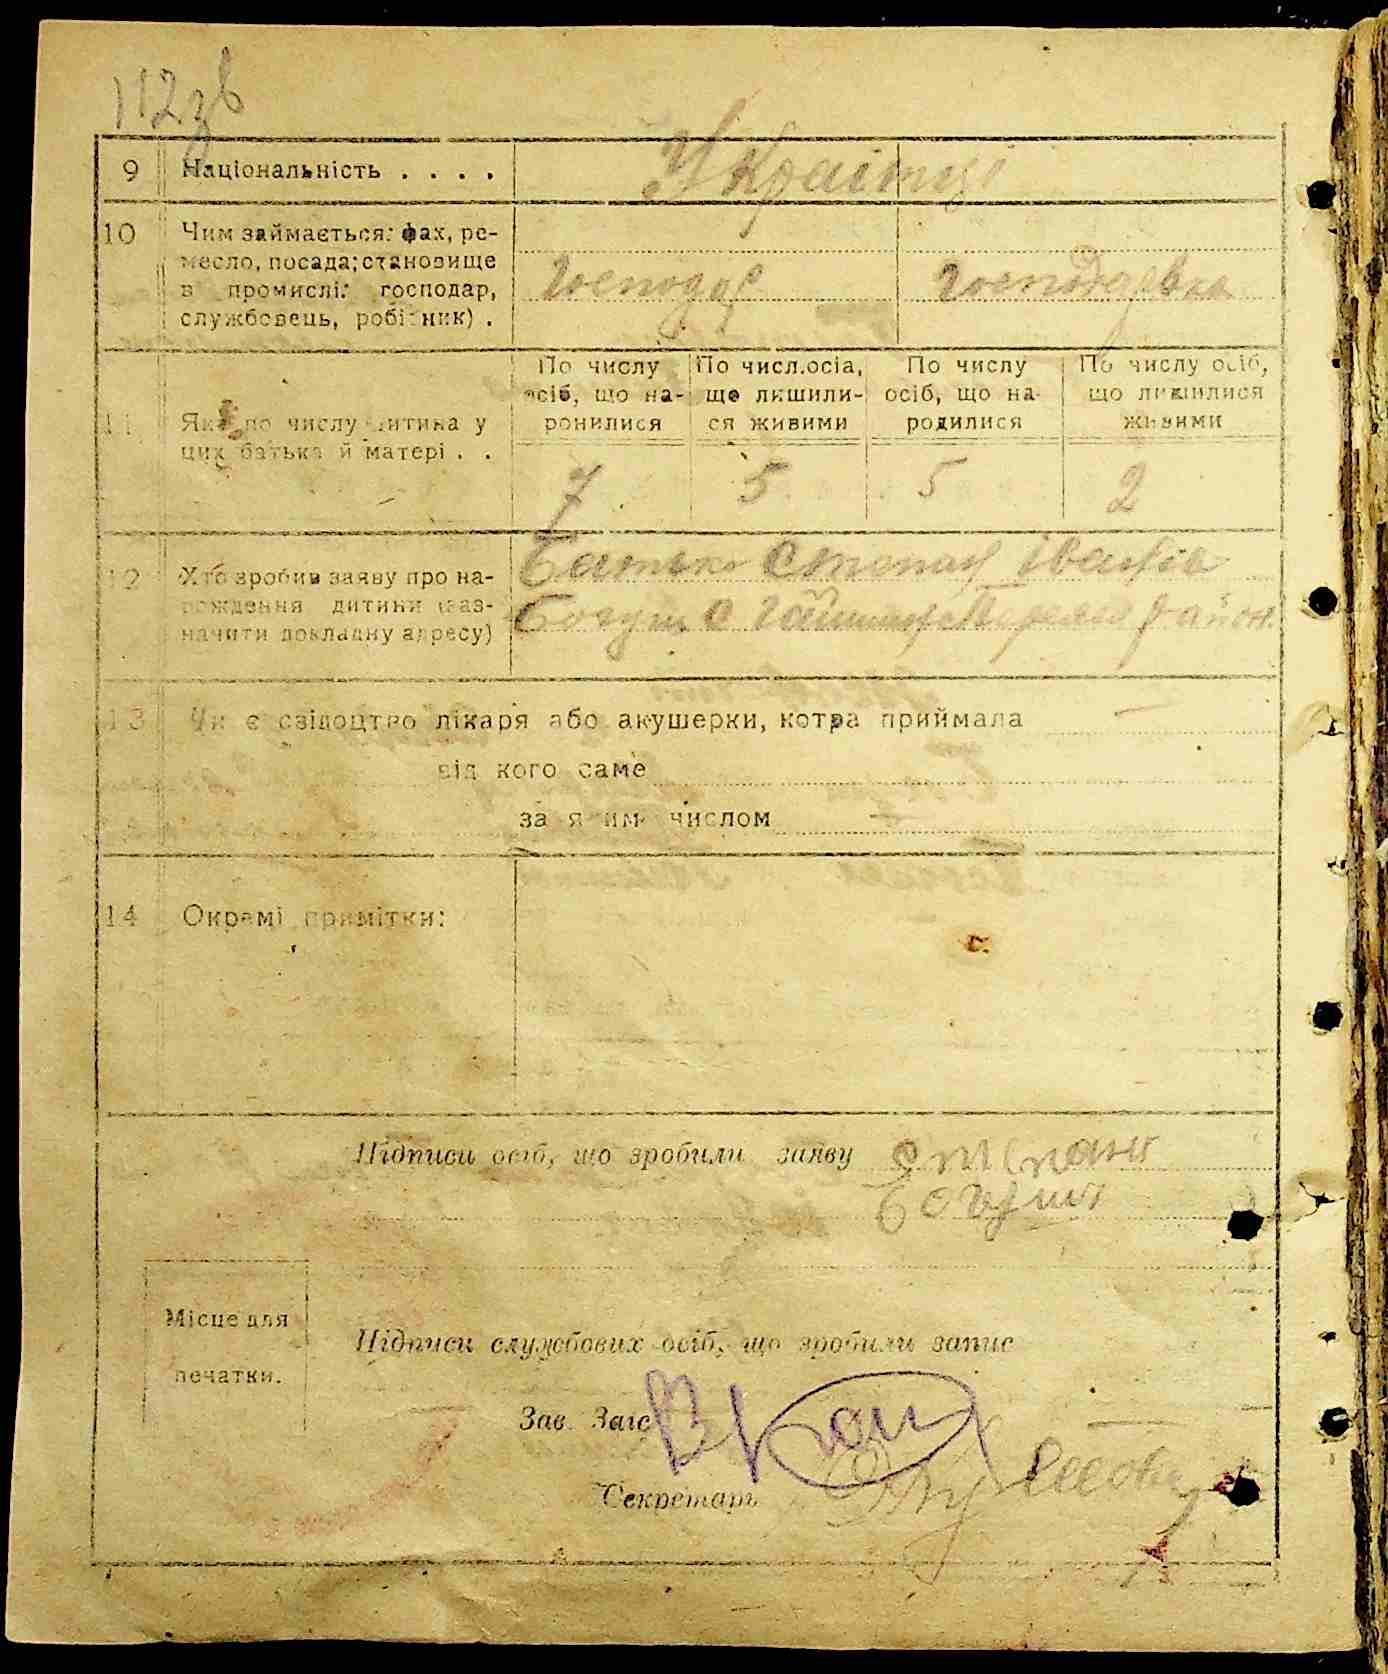 112зв
9 Національність . . . .
Українці
10 Чим займається: фах, ре-
месло, посада; становище
в промислі: господар,
службовець, робітник) .
Господар Господарка
По числу осіб, що на-ронилися
По числ.осіа, ще лишили-ся живими
По числу осіб, що на-родилися
По числу осіб, що лишилися живими
11 Яка по числу дитина у
цих батька й матері . .
7 5 5 2
12 Хто зробив заяву про на-
рождення дитини (заз-
начити докладну адресу)
Батько Степан Іванів
Богуш с Гайшин Переясл район.
13 Чи є свідоцтво лікаря або акушерки, котра приймала —
від кого саме
за яким числом
14 Окремі примітки:
Підписи осіб, що зробили заяву Степан
Богуш
Місце для
печатки.
Підписи службових осіб, що зробили запис
Зав. Загс
Секретарь